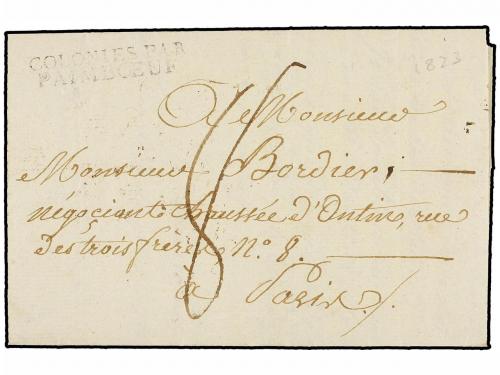 COLONIES PAR
PAIMBŒUF
1823
A Monsieur
Monsieur Bordier,
négociant chaussée d'Antin, rue
des trois frères, N.º 8.
à Paris
8